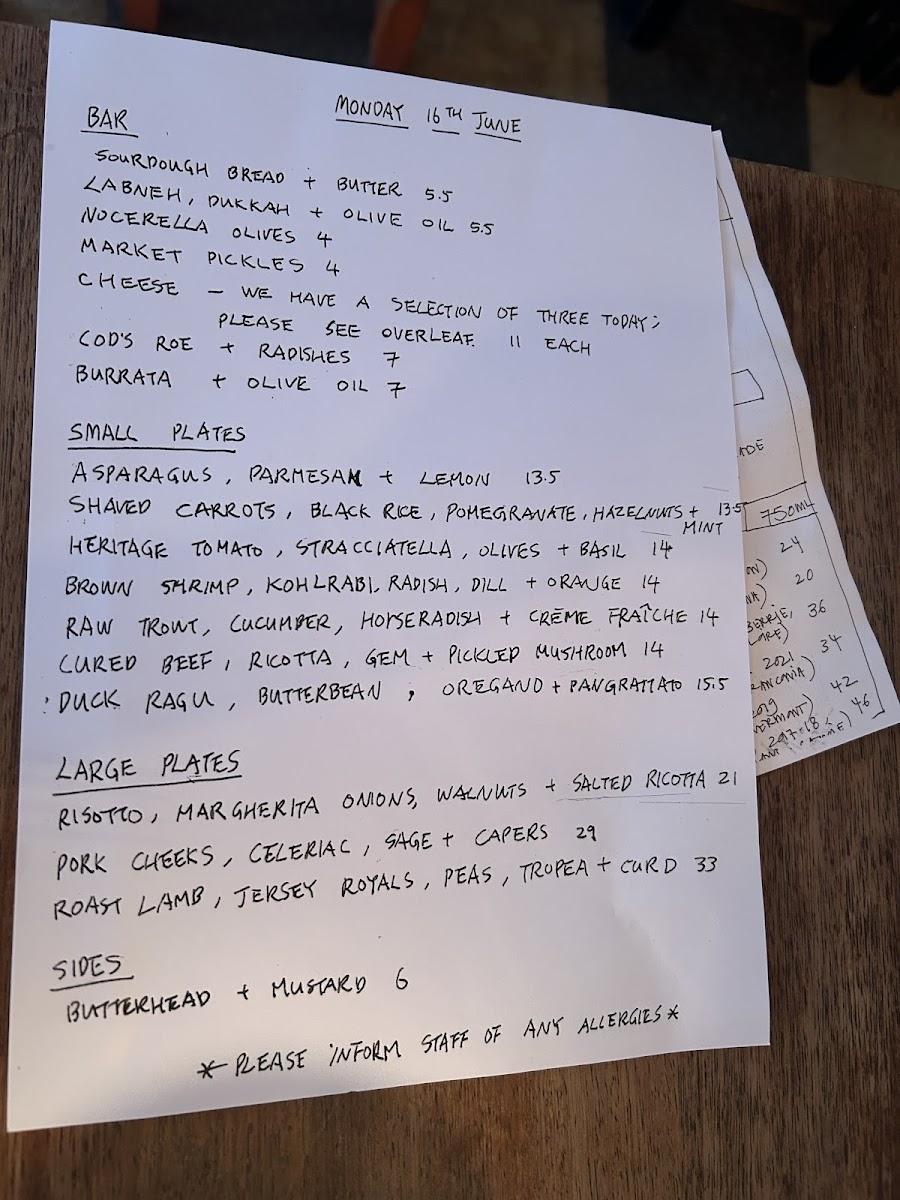 MONDAY 16TH JUNE
BAR
SOURDOUGH BREAD + BUTTER 5.5
LABNEH, DUKKAH + OLIVE OIL 5.5
NOCERELLA OLIVES 4
MARKET PICKLES 4
CHEESE – WE HAVE A SELECTION OF THREE TODAY;
PLEASE SEE OVERLEAF. 11 EACH
COD'S ROE + RADISHES 7
BURRATA + OLIVE OIL 7
SMALL PLATES
ASPARAGUS, PARMESAN + LEMON 13.5
SHAVED CARROTS, BLACK RICE, POMEGRANATE, HAZELNUTS + 13.5
MINT
HERITAGE TOMATO, STRACCIATELLA, OLIVES + BASIL 14
BROWN SHRIMP, KOHLRABI, RADISH, DILL + ORANGE 14
RAW TROUT, CUCUMBER, HORSERADISH + CRÈME FRAÎCHE 14
CURED BEEF, RICOTTA, GEM + PICKLED MUSHROOM 14
DUCK RAGU, BUTTERBEAN, OREGANO + PANGRATTATO 15.5
LARGE PLATES
RISOTTO, MARGHERITA ONIONS, WALNUTS + SALTED RICOTTA 21
PORK CHEEKS, CELERIAC, SAGE + CAPERS 29
ROAST LAMB, JERSEY ROYALS, PEAS, TROPEA + CURD 33
SIDES
BUTTERHEAD + MUSTARD 6
* PLEASE INFORM STAFF OF ANY ALLERGIES *
ADE
750ML
24
20
36
2021 34
2019 42
46